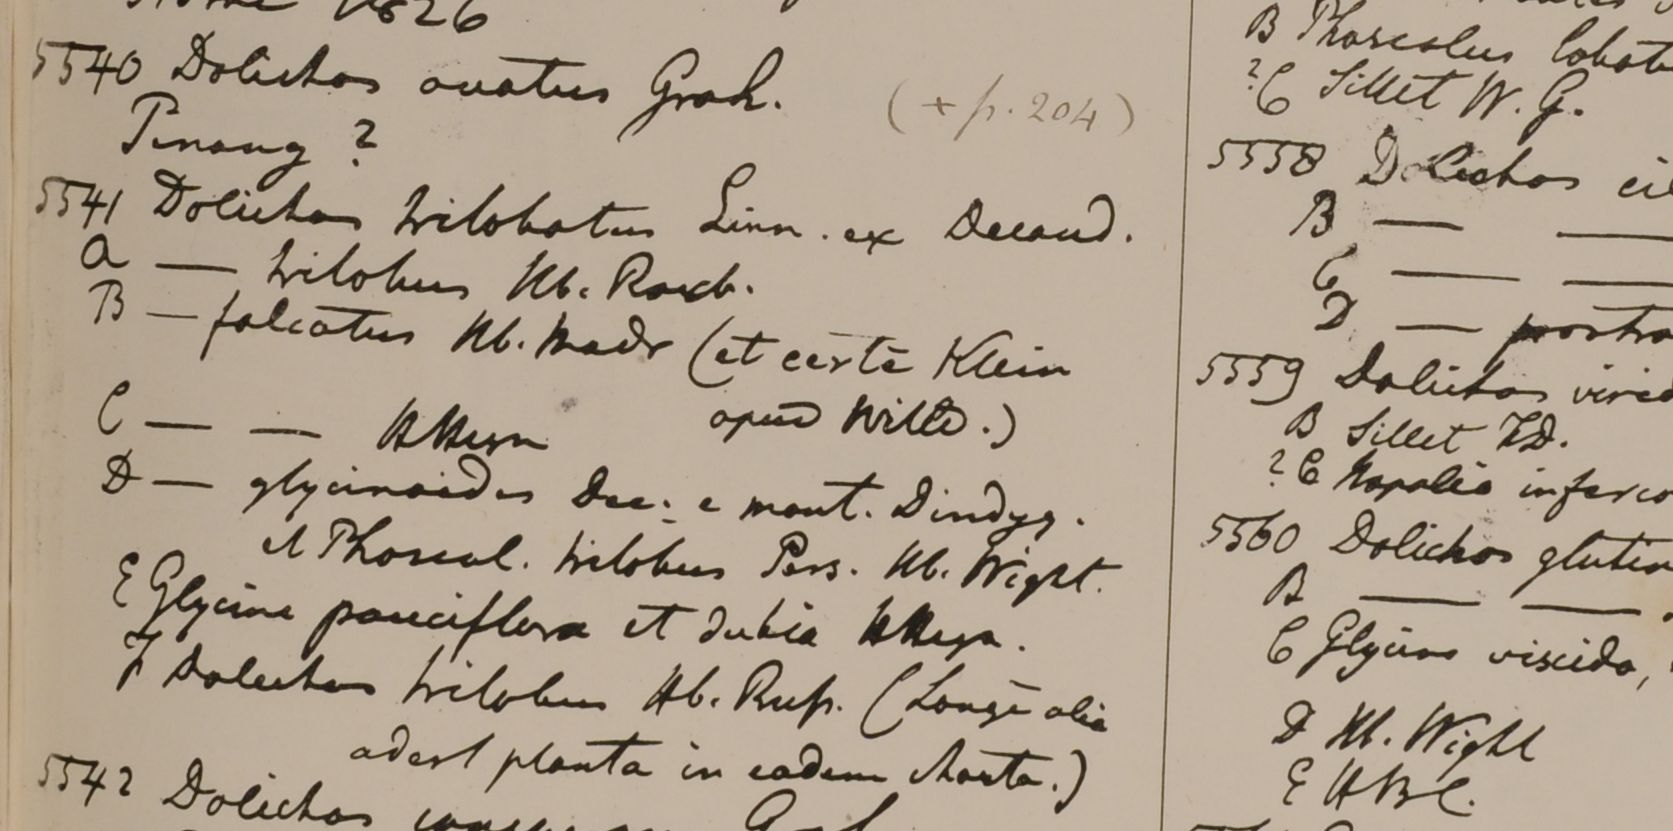 1826
5540 Dolichos ovatus Grah. (+ p. 204)
Penang ?
5541 Dolichos trilobatus Linn. ex Decand.
A — trilobus Hb. Roxb.
B — falcatus Hb. Madr (et certē Klein
apud Willd.)
C — — HHeyn
D — glycinoides Dec. e mont. Dindyg.
et Phaseol. trilobus Pers. Hb. Wight.
E Glycine pauciflora et dubia HHeyn.
F Dolichos trilobus Hb. Russ. (Longē alia
adest planta in eadem charta.)
5542 Dolichos
B Phaseolus lobat
?C Sillet W. G.
5558 Dolichos cil
B — —
C — —
D — prostra
5559 Dolichos virid
B Sillet F.D.
?C Napalia inferio
5560 Dolichos glutin
B — —
C Glycine viscida,
D Hb. Wight
E HBC.